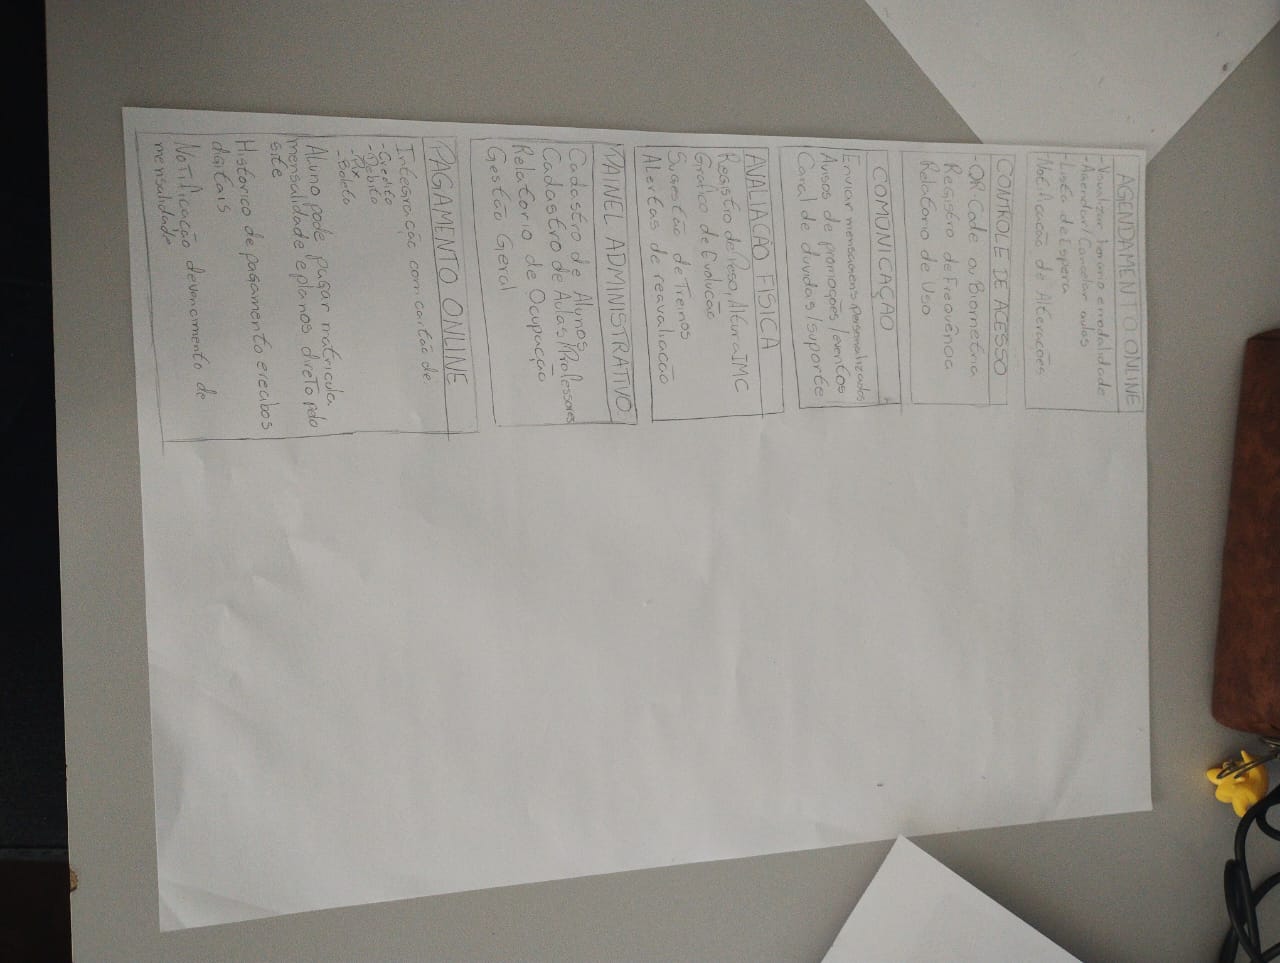 AGENDAMENTO ONLINE
-Visualizar horario e modalidade
-Agendar/Cancelar aulas
-Lista de Espera
-Notificação de Alterações
CONTROLE DE ACESSO
-QR Code ou Biometria
Registro de Frequência
Relatorio de Uso
COMUNICAÇÃO
Enviar mensagens personalizadas
Avisos de promoções/eventos
Canal de duvidas/suporte
AVALIAÇÃO FISICA
Registro de Peso, Altura IMC
Grafico de Evolucão
Sugestão de Treinos
Alertas de reavaliacão
PAINEL ADMINISTRATIVO
Cadastro de Alunos
Cadastro de Aulas/Professores
Relatorio de Ocupação
Gestão Geral
PAGAMENTO ONLINE
Integração com cartão de
-Credito
-Debito
-Pix
-Boleto
Aluno pode pagar matricula
mensalidade e planos direto pelo
site
Historico de pagamento e recibos
digitais
Notificação de vencimento de
mensalidade